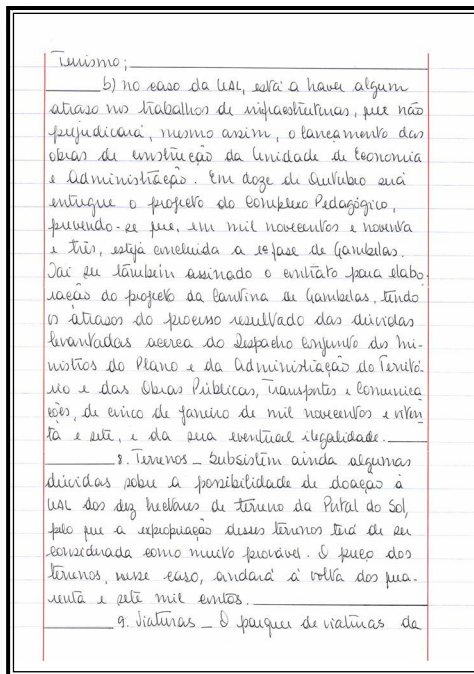 Turismo;
b) no caso da UAL, está a haver algum
atraso nos trabalhos de infraestruturas, que não
prejudicará, mesmo assim, o lançamento das
obras de construção da Unidade de Economia
e Administração. Em doze de Outubro será
entregue o projecto do Complexo Pedagógico,
prevendo-se que, em mil novecentos e noventa
e três, esteja concluída a 1ª fase de Gambelas.
Vai ser também assinado o contrato para elabo-
ração do projecto da Cantina de Gambelas, tendo
os atrasos do processo resultado das dúvidas
levantadas acerca do Despacho conjunto dos Mi-
nistros do Plano e da Administração do Territó-
rio e das Obras Públicas, Transportes e Comunica-
ções, de cinco de Janeiro de mil novecentos e oiten-
ta e sete, e da sua eventual ilegalidade.
8. Terrenos - Subsistem ainda algumas
dúvidas sobre a possibilidade de doação à
UAL dos dez hectares de terreno da Portal do Sol,
pelo que a expropriação desses terrenos terá de ser
considerada como muito provável. O preço dos
terrenos, nesse caso, andará à volta dos qua-
renta e sete mil contos.
9. Viaturas - O parque de viaturas da